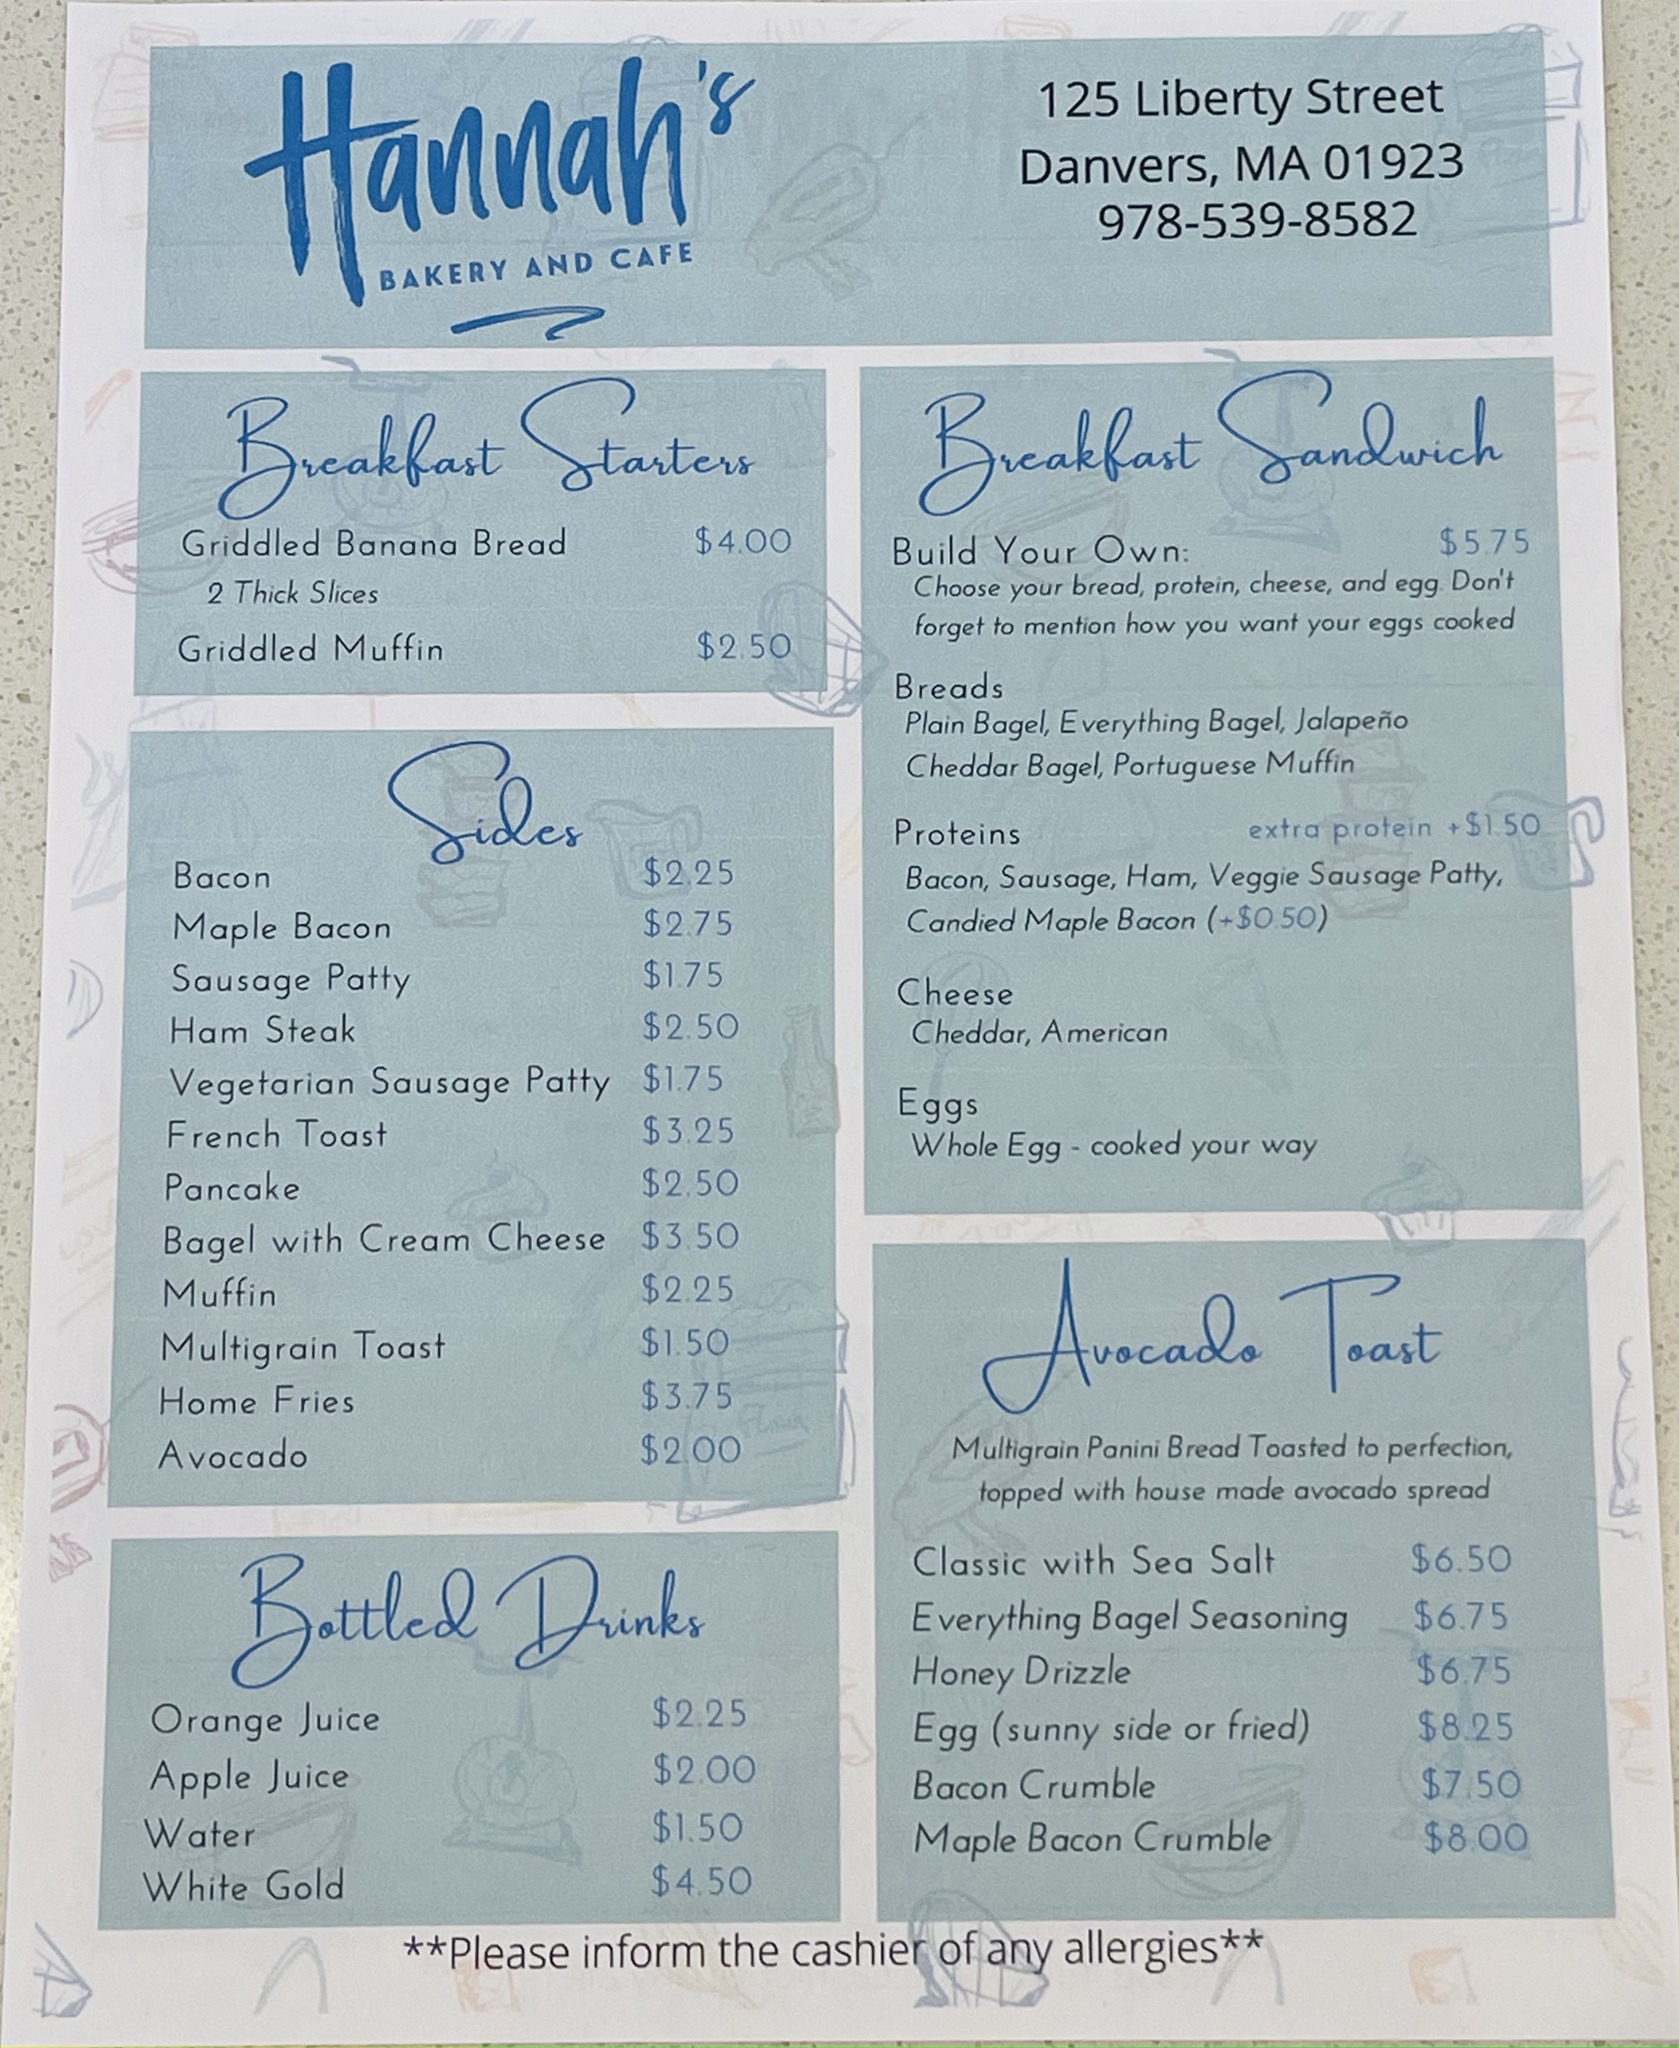 Hannah's
BAKERY AND CAFE
125 Liberty Street
Danvers, MA 01923
978-539-8582
Breakfast Starters
Griddled Banana Bread $4.00
2 Thick Slices
Griddled Muffin $2.50
Sides
Bacon $2.25
Maple Bacon $2.75
Sausage Patty $1.75
Ham Steak $2.50
Vegetarian Sausage Patty $1.75
French Toast $3.25
Pancake $2.50
Bagel with Cream Cheese $3.50
Muffin $2.25
Multigrain Toast $1.50
Home Fries $3.75
Avocado $2.00
Bottled Drinks
Orange Juice $2.25
Apple Juice $2.00
Water $1.50
White Gold $4.50
Breakfast Sandwich
Build Your Own: $5.75
Choose your bread, protein, cheese, and egg. Don't
forget to mention how you want your eggs cooked
Breads
Plain Bagel, Everything Bagel, Jalapeño
Cheddar Bagel, Portuguese Muffin
Proteins extra protein +$1.50
Bacon, Sausage, Ham, Veggie Sausage Patty,
Candied Maple Bacon (+$0.50)
Cheese
Cheddar, American
Eggs
Whole Egg - cooked your way
Avocado Toast
Multigrain Panini Bread Toasted to perfection,
topped with house made avocado spread
Classic with Sea Salt $6.50
Everything Bagel Seasoning $6.75
Honey Drizzle $6.75
Egg (sunny side or fried) $8.25
Bacon Crumble $7.50
Maple Bacon Crumble $8.00
**Please inform the cashier of any allergies**